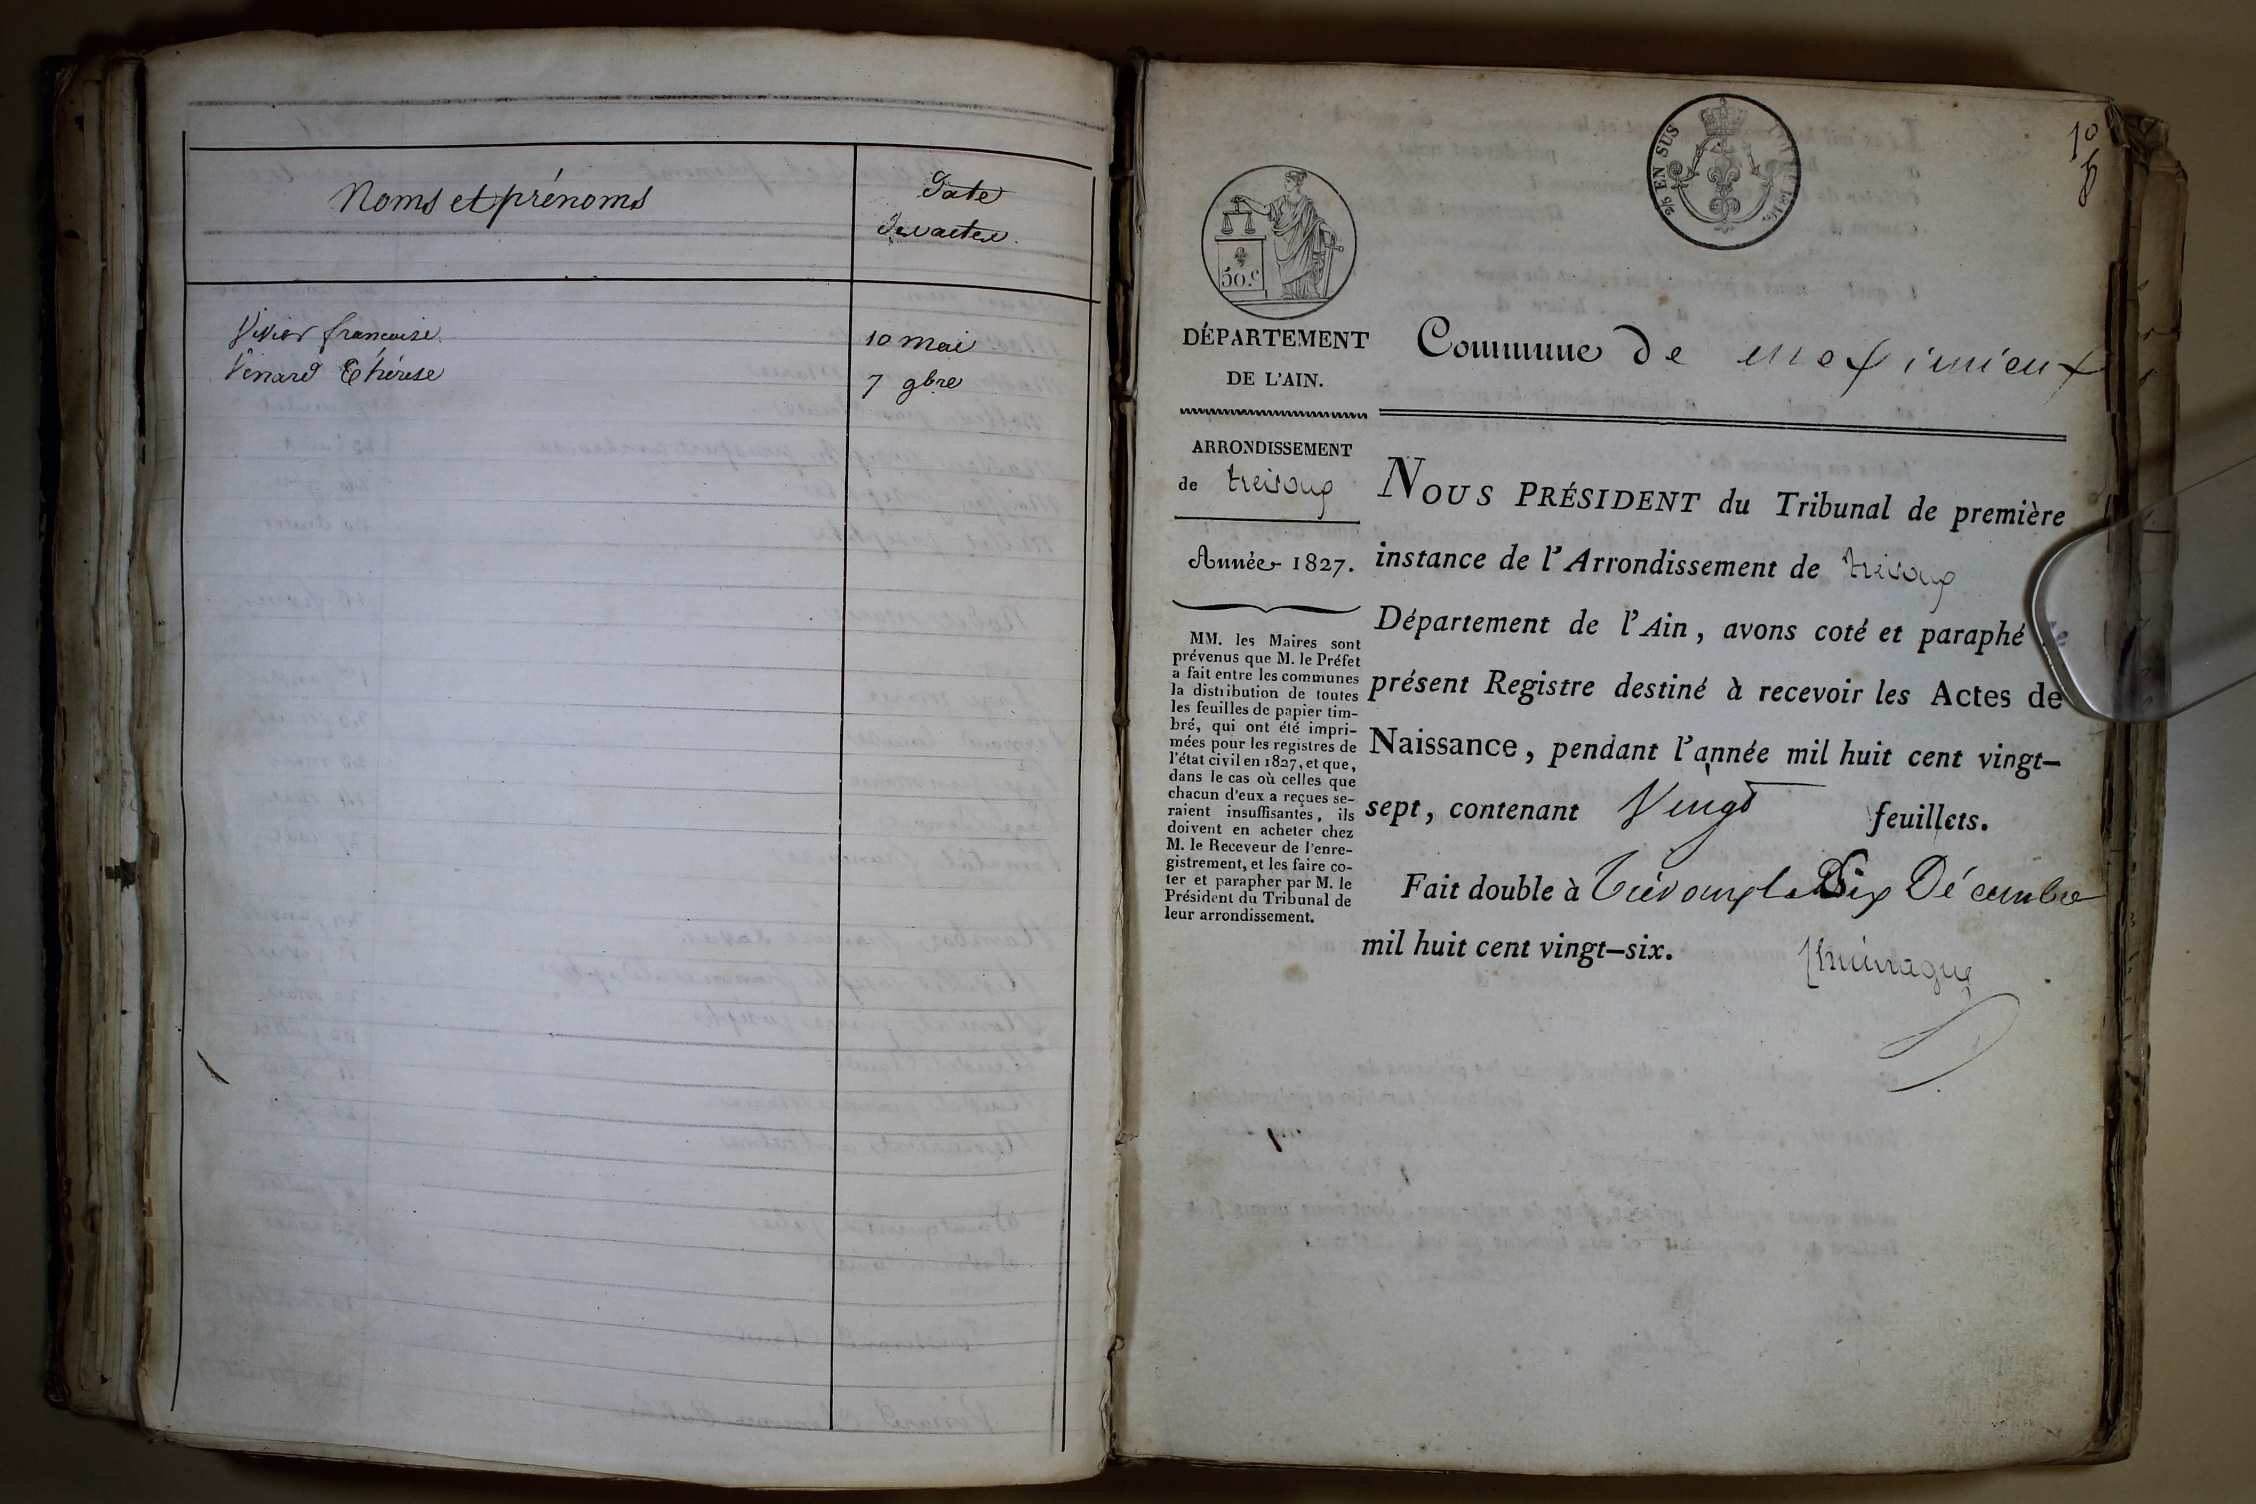 Noms et prénoms
Date
des actes.
Vivier françoise.
10 mai
Vénard Thérèse
7 9bre
50.c
2/5 EN SUS
10
DÉPARTEMENT
DE L'AIN.
Commune de meximieux
ARRONDISSEMENT
de trévoux
Année 1827.
MM. les Maires sont
prévenus que M. le Préfet
a fait entre les communes
la distribution de toutes
les feuilles de papier tim-
bré, qui ont été impri-
mées pour les registres de
l'état civil en 1827, et que,
dans le cas où celles que
chacun d'eux a reçues se-
raient insuffisantes, ils
doivent en acheter chez
M. le Receveur de l'enre-
gistrement, et les faire co-
ter et parapher par M. le
Président du Tribunal de
leur arrondissement.
NOUS PRÉSIDENT du Tribunal de première
instance de l'Arrondissement de trévoux
Département de l'Ain, avons coté et paraphé le
présent Registre destiné à recevoir les Actes de
Naissance, pendant l'année mil huit cent vingt-
sept, contenant Vingt feuillets.
Fait double à Trévoux le Dix Décembre
mil huit cent vingt-six.